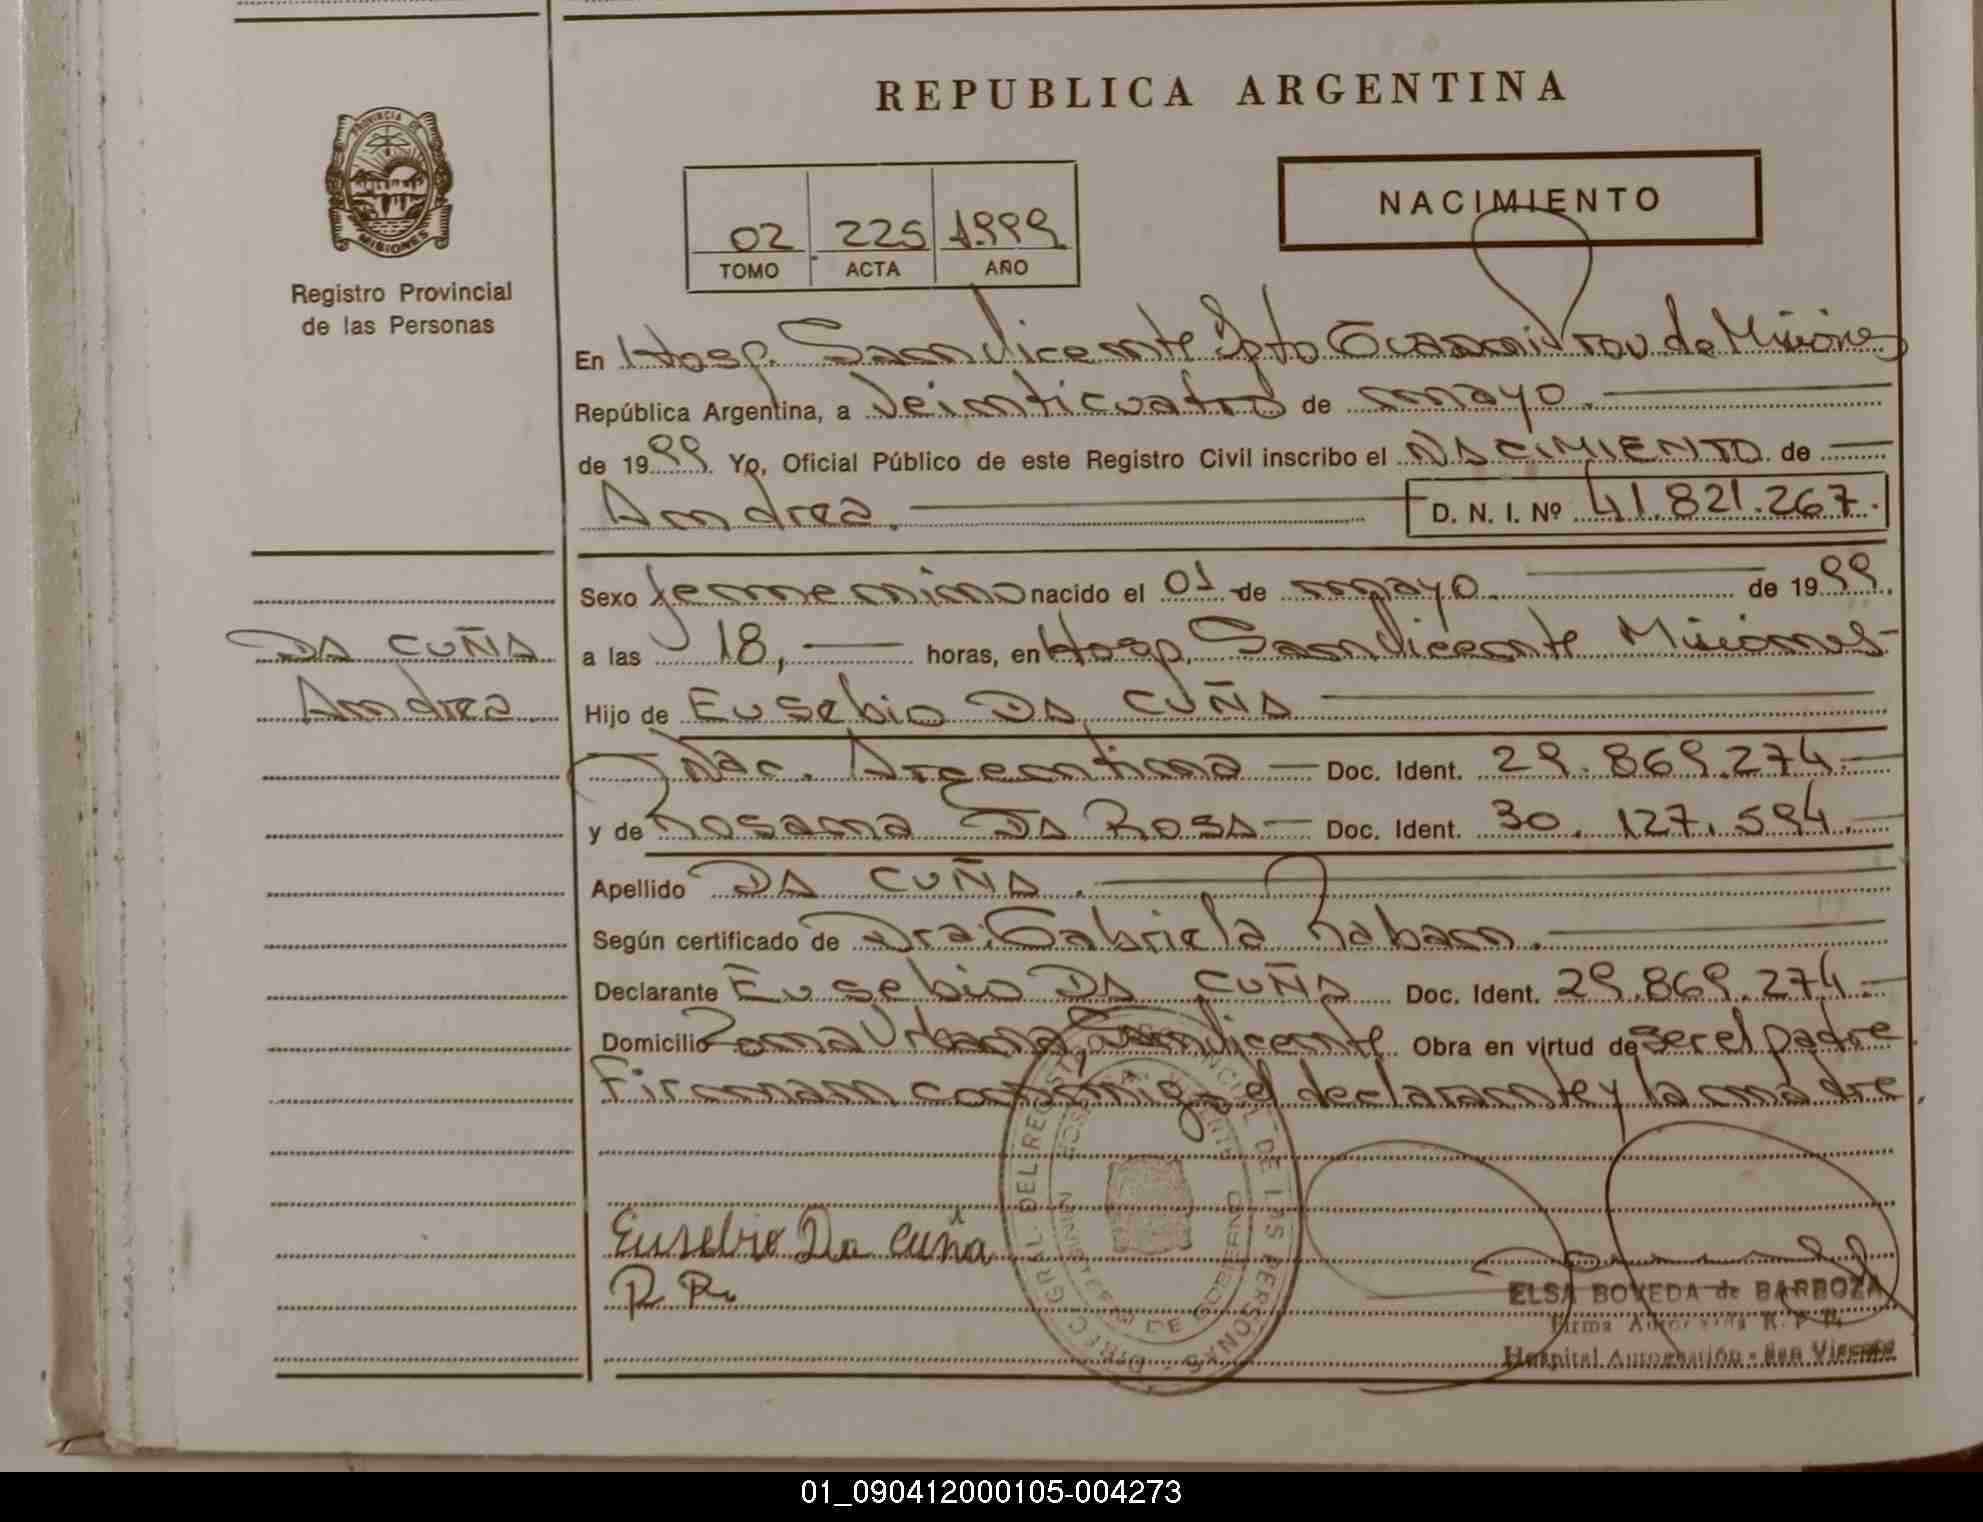 REPUBLICA ARGENTINA
PROVINCIA DE
MISIONES
Registro Provincial
de las Personas
NACIMIENTO
02 225 1999
TOMO ACTA AÑO
En Hosp. San Vicente Dpto Guaraní Prov. de Misiones
República Argentina, a Veinticuatro de mayo.
de 1999 Yo, Oficial Público de este Registro Civil inscribo el NACIMIENTO de
Andrea. D. N. I. Nº 41.821.267.
Sexo femenino nacido el 01 de mayo. de 1999.
DA CUÑA
Andrea
a las 18, horas, en Hosp. San Vicente Misiones
Hijo de Eusebio DA CUÑA
Nac. Argentina Doc. Ident. 29.869.274.
y de Rosana DA ROSA Doc. Ident. 30.127.594.
Apellido DA CUÑA.
Según certificado de Dra. Gabriela Raban.
Declarante Eusebio DA CUÑA Doc. Ident. 29.869.274.
Domicilio Zona Urbana, San Vicente Obra en virtud de ser el padre
Firman conmigo el declarante y la madre.
Eusebio Da Cuña
R R.
DIREC. GRAL. DEL REGISTRO PROVINCIAL DE LAS PERSONAS
ELSA BOVEDA de BARBOZA
Firma Autorizada R. P. P.
Hospital Autogestión - San Vicente
01_090412000105-004273